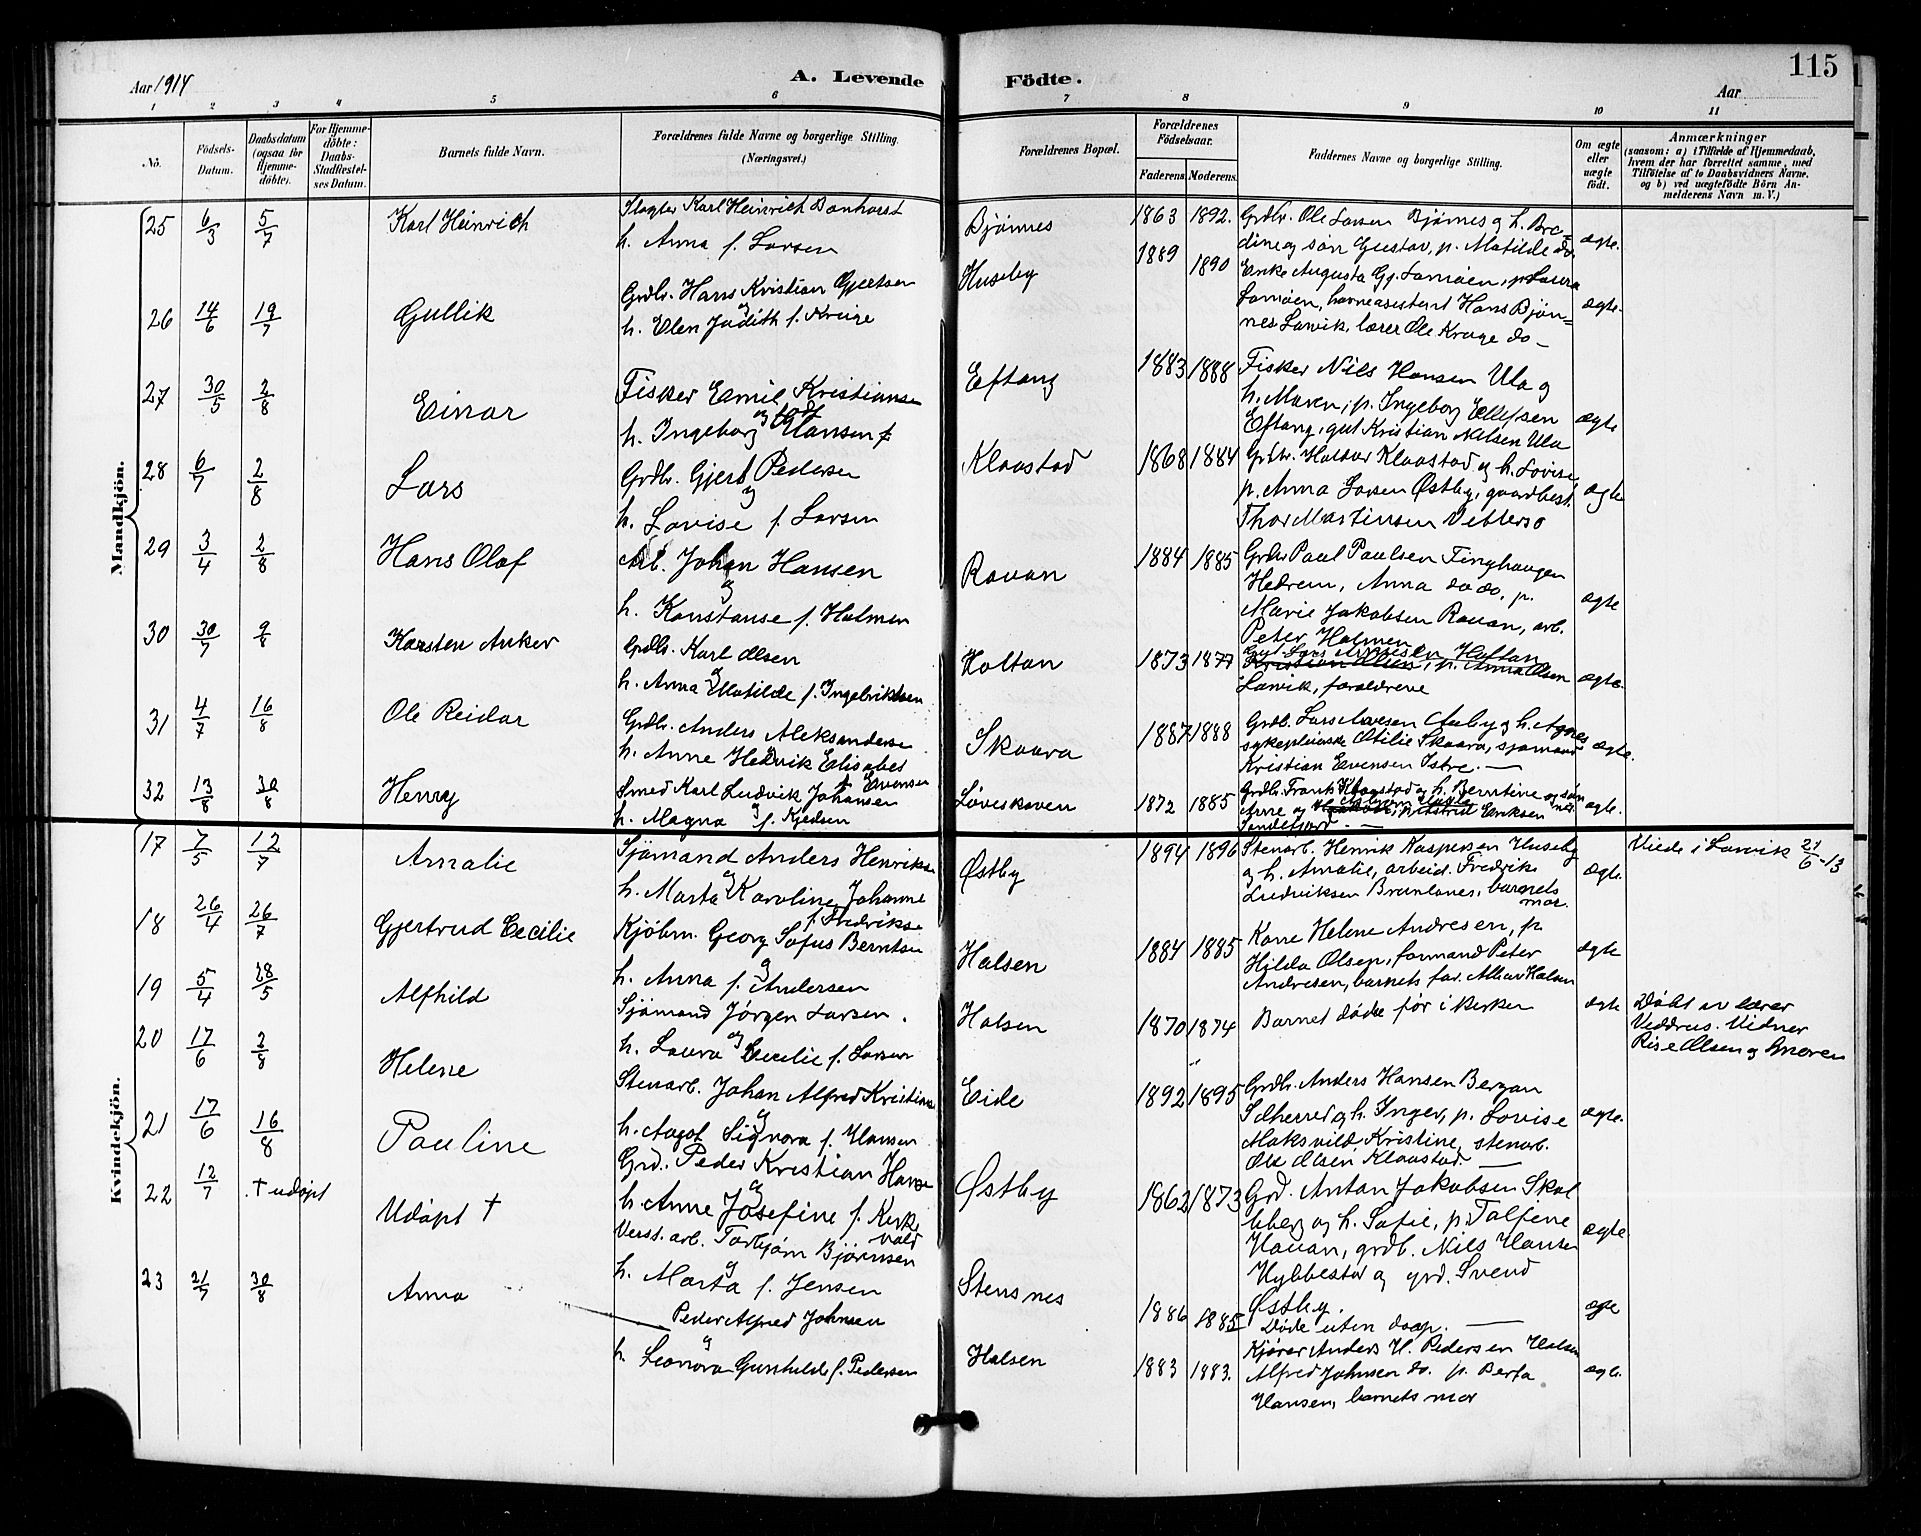 115
Aar 1914
A. Levende Födte.
Aar
1 2 3 4 5 6 7 8 9 10 11
No.
Födsels-Datum.
Daabsdatum (ogsaa for Hjemme-döbte).
For Hjemme-döbte: Daabs-Stadfæstel-ses Datum.
Barnets fulde Navn.
Forældrenes fulde Navne og borgerlige Stilling.
(Næringsvei.)
Forældrenes Bopæl.
Forældrenes Födselsaar.
Faderens. Moderens.
Faddernes Navne og borgerlige Stilling.
Om ægte eller uægte födt.
Anmærkninger
(saasom: a) i Tilfælde af Hjemmedaab, hvem der har forrettet samme, med Tilföielse af to Daabsvidners Navne, og b) ved uægtefödte Börn An-melderens Navn m. V.)
Mandkjön.
25 6/3 5/7 Karl Heinrich
Slagter Karl Heinrich Bonhorst
h. Anna f. Larsen
Bjønnes 1863 1892.
Grdbr. Ole Larsen Bjønnes og h. Bre-
dine og søn Gustav, p. Matilde do.
ægte.
26 14/6 19/7 Gullik
Grdbr. Hans Kristian Gjertsen
og
h. Elen Judith f. Kruge
Huseby 1889 1890
Enke Augusta Gg. Lamøen, p. Laura
Lamøen, havneasistent Hans Bjøn-
nes Larvik, lærer Ole Kruge do –
ægte.
27 30/5 2/8 Einar
Fisker Emil Kristiansen
og
h. Ingeborg Hansen
Eftang 1883 1888
Fisker Nils Hansen Ula og
h. Maren, p. Ingeborg Ellefsen
Eftang, gut Kristian Nilsen Ula
ægte
28 6/7 2/8 Lars
Grdbr. Gjert Pedersen
og
h. Lovise f. Larsen
Klaastad 1868 1884
Grdbr. Halvor Klaastad og h. Lovise,
p. Anna Larsen Østby, gaardbest.
Thor Martinsen Vittersø
ægte
29 3/4 2/8 Hans Olaf
Arb. Johan Hansen
og
h. Konstanse f. Holmen
Rauan 1884 1885
Grdbr Paul Paulsen Tinghaugen
Hedrum, Anna do do. p.
Marie Jakobsen Rauan, arb.
Peter Holmen
ægte
30 30/7 9/8 Karsten Anker
Grdbr. Karl Olsen
og
h. Anna Matilde f. Ingebriktsen
Holtan 1873 1877
Kristian Olsen, p. Anna Olsen
Larvik, forældrene
ægte.
31 4/7 16/8 Ole Reidar
Grdbr. Anders Aleksandersen
h. Anne Hedvik Elisabet
f. Evensen
Skaara 1887 1888
Grdb. Lars Auby og h. Agnes
sykepleierske Otilie Skaara, sjømand
Kristian Evensen Istre. —
ægte.
32 13/8 30/8 Henry
Smed Karl Ludvik Johansen
og
h. Magna f. Kjeldsen
Løveskoven 1872 1885
Grdb. Frants Klaastad og h. Berntine og søn
Arne og p. Astrid Eriksen
Sandefjord —
ægte.
Kvindekjön.
17 7/5 12/7 Amalie
Sjømand Anders Henriksen
og
h. Marta Karoline Johanne
f. Fredriksen
Østby 1894 1896
Stenarb. Henrik Kaspersen Huseby
og h. Amalie, arbeid. Fredrik
Ludviksen Brunlanes, barnets
mor.
ægte.
Viede i Larvik 21/6 – 13
18 26/4 26/7 Gjertrud Cecilie
Kjøbm. Georg Sofus Berntsen
og
h. Anna f. Andersen
Halsen 1884 1885
Kone Helene Andresen, p.
Hilda Olsen, formand Peter
Andresen, barnets far. Alle av Halsen
ægte
19 5/4 28/5 Alfhild
Sjømand Jørgen Larsen.
og
h. Laura Cecilie f. Larsen
Halsen 1870 1874
Barnet døde før i kirken
ægte
Døbt av lærer
Vidner
Olsen og moren
20 17/6 2/8 Helene
Stenarb. Johan Alfred Kristiansen
og
h. Aagot Signora f. Hansen
Eide 1892 1895
Grdb. Anders Hansen Bergan
Sdherred og h. Inger, p. Lovise
Maksvild Kristine, stenarb.
Ole Olsen Klaastad. —
ægte.
21 17/6 16/8 Pauline
Grd. Peder Kristian Hansen
og
h. Anne Josefine f. Kirke
vold
Østby 1862 1873
Grd. Anton Jakobsen Skal
leberg og h. Sofie, p. Tolfine
Hauan, grdb. Nils Hansen
Hybbestad og grd. Svend
Østby.
ægte
22 12/7 † udøpt Udøpt †
Verst. arb. Torbjørn Bjørnsen
og
h. Marta f. Jensen
Stensnes 1886 1885
Døde uten daap. —
ægte
23 21/7 30/8 Anna
Peder Alfred Johnsen
og
h. Leonora Gunhilde f. Pedersen
Halsen 1883 1883.
Kjører Anders H. Pedersen Halsen
Alfred Johnsen do. p. Berta
Hansen, barnets mor
ægte.